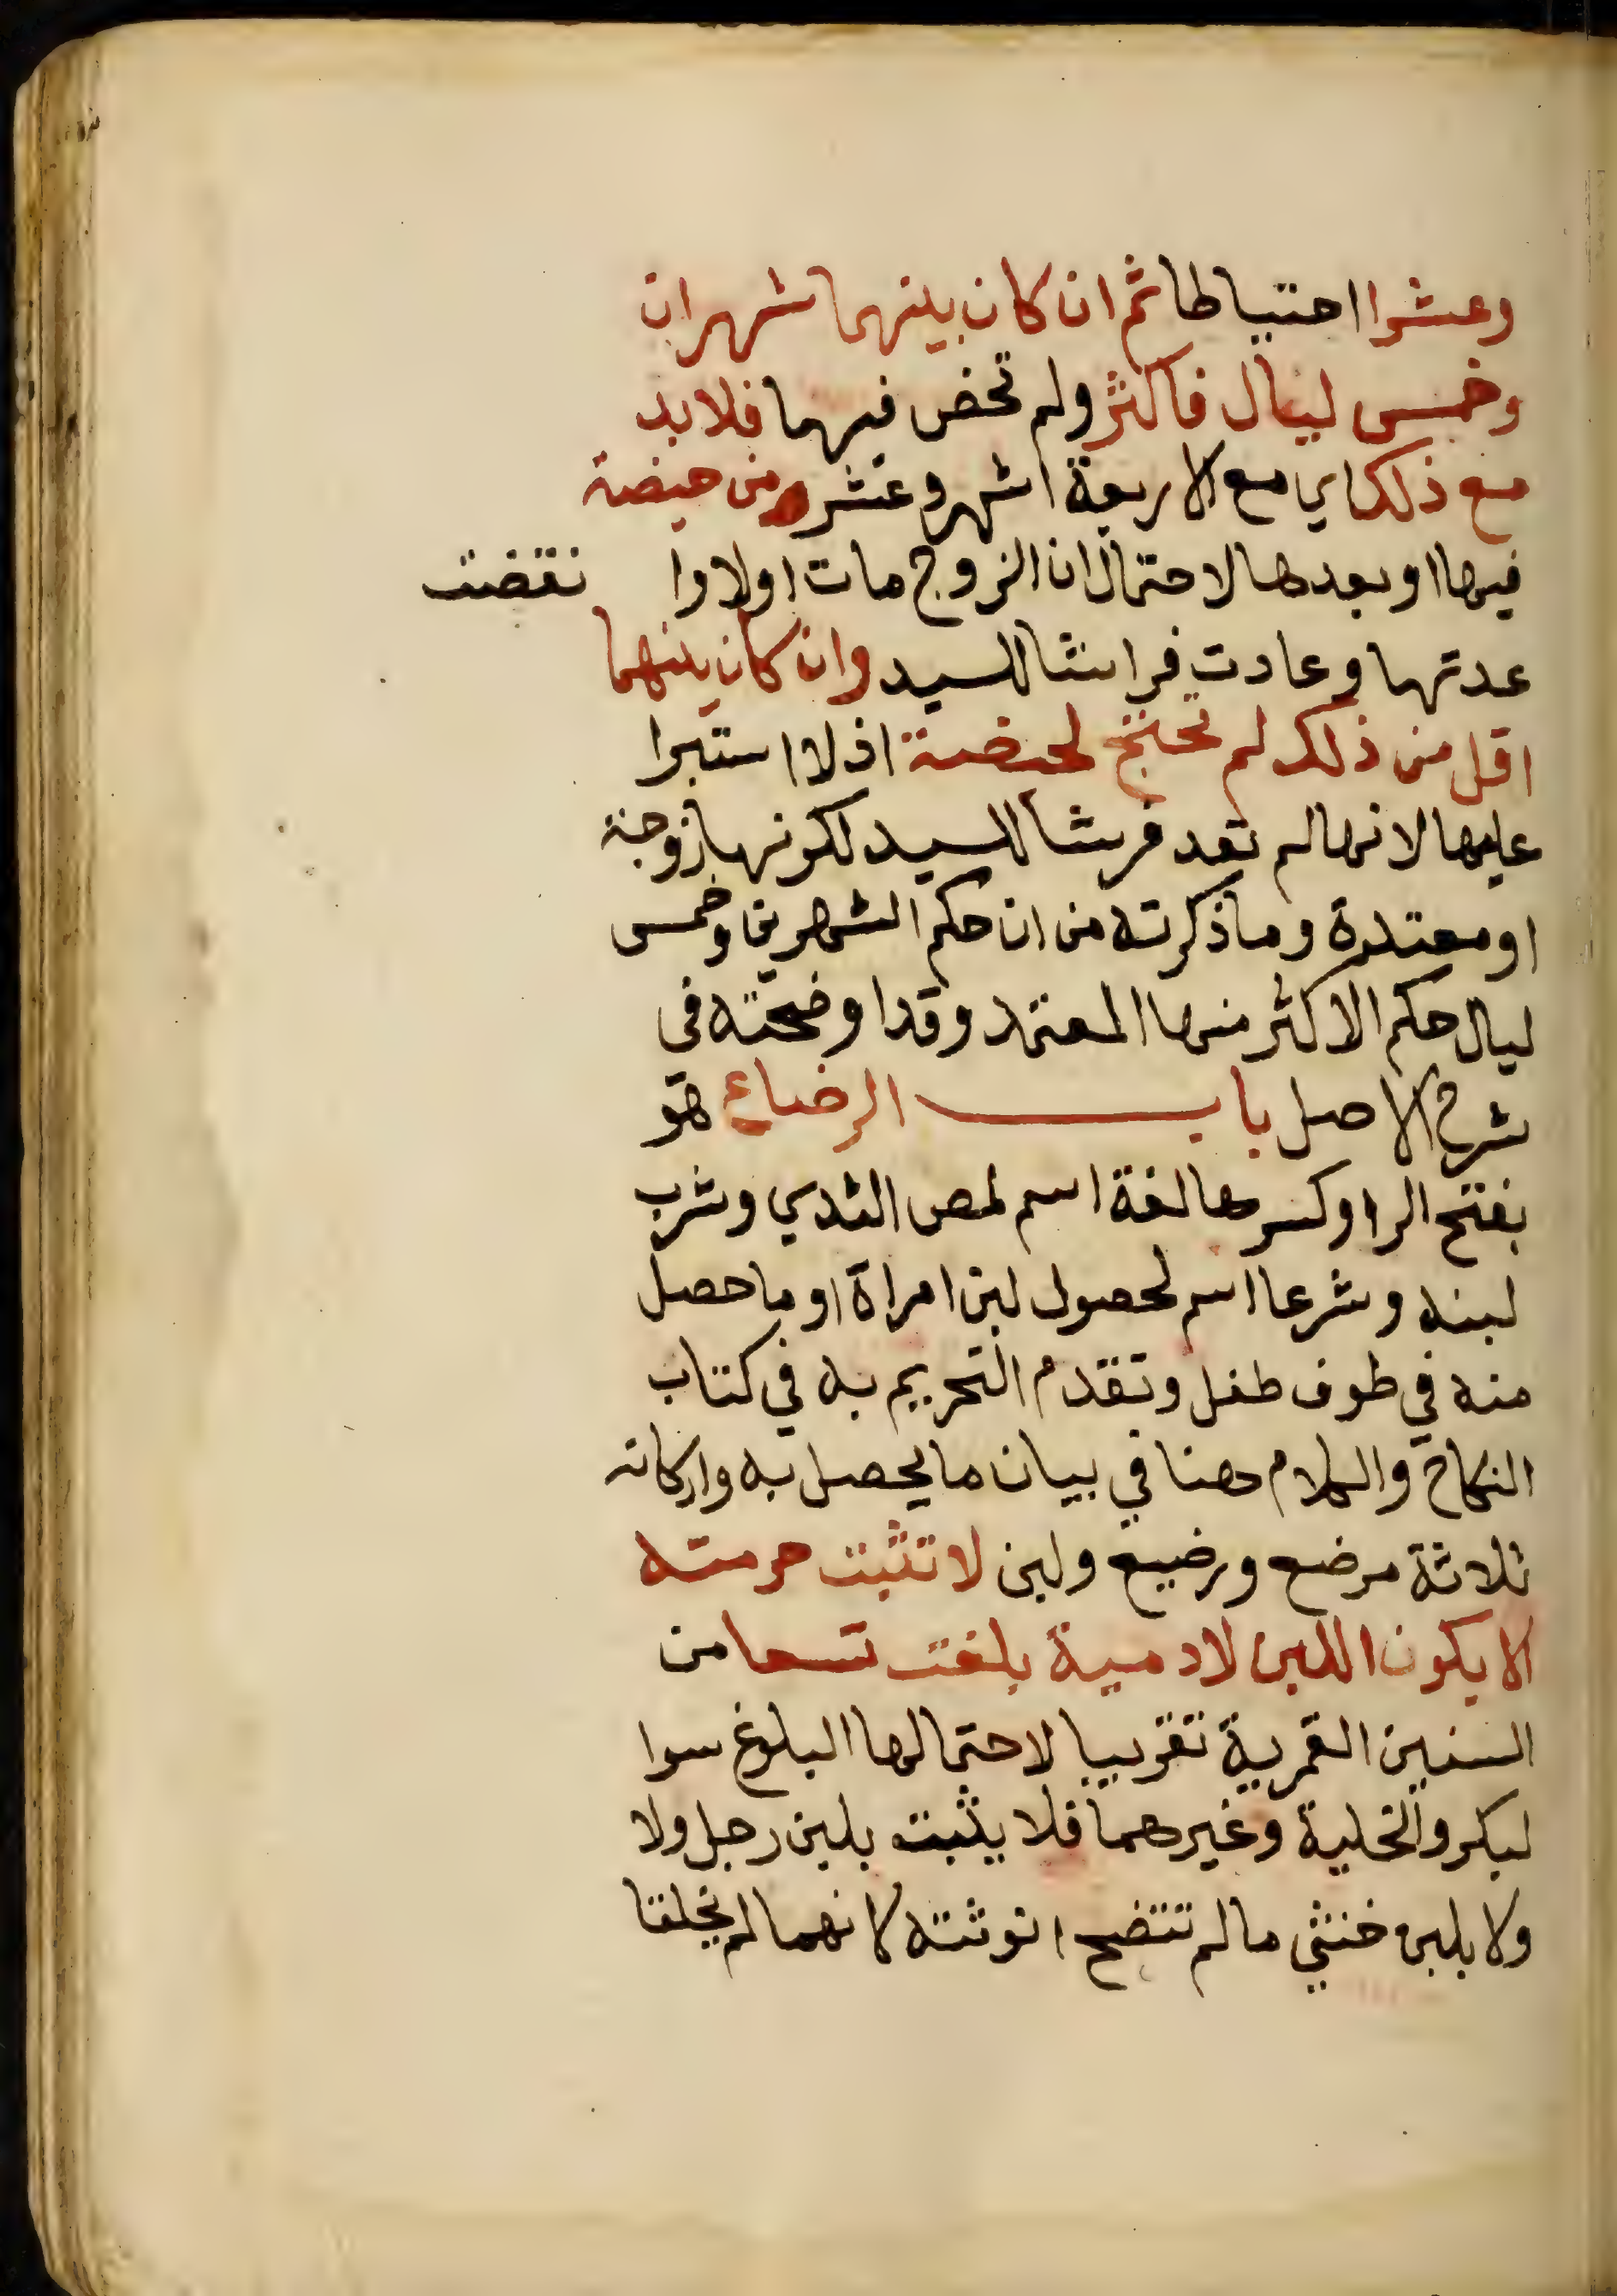 وعشرا احتياطا ثم ان كان بينهما شهران
وخمس ليال فاكثر ولم تحض فيهما فلا بد
مع ذلك اي مع الاربعة اشهر وعشر من حيضة
فيها او بعدها لاحتمال ان الزوج مات اولا وا نقضت
عدتها وعادت فراشا للسيد وان كان بينهما
اقل من ذلك لم تحتج لحيضة اذ لا استبرا
عليها لانها لم تعد فرشا للسيد لكونها زوجة
او معتدة وما ذكرته من ان حكم الشهرين وخمس
ليال حكم الاكثر منها المعتمد وقد اوضحته في
شرح الاصل باب الرضاع هو
بفتح الرا وكسرها لغة اسم لمص الثدي وشرب
لبنه وشرعا اسم لحصول لبن امراة او ما حصل
منه في طوف طفل وتقدم التحريم به في كتاب
النكاح والكلام هنا في بيان ما يحصل به واركانه
ثلاثة مرضع ورضيع ولبن لا تثبت حرمته
الا يكون اللبن لادمية بلغت تسعا من
السنين القمرية تقريبا لاحتمالها البلوغ سوا
لبكر والخلية وغيرهما فلا يثبت بلبن رجل ولا
ولا بلبن خنثي ما لم تتضح انوثته لانهما لم يخلقا